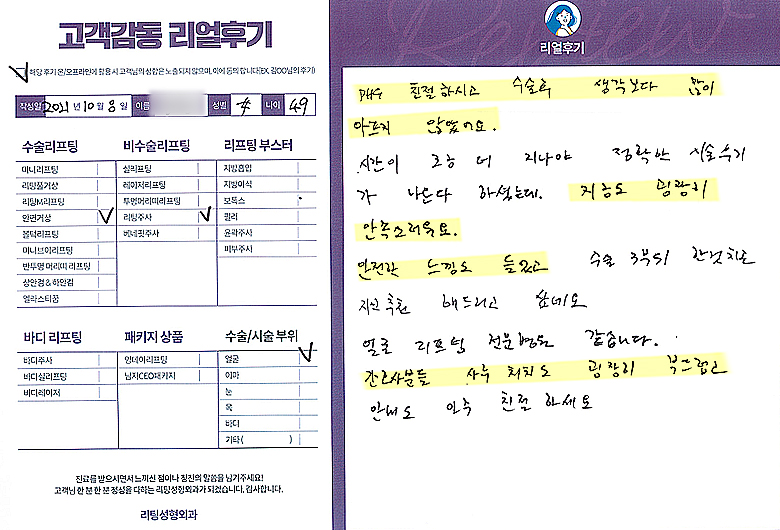 고객감동 리얼후기
해당 후기 온/오프라인에 활용 시 고객님의 성함은 노출되지 않으며, 이에 동의합니다(EX. 김OO님의 후기)
작성일 2021년 10월 8일 이름 성별 나이 49
수술리프팅
미니리프팅
리팅풀거상
리팅M리프팅
안면거상
볼턱리프팅
미니브이리프팅
반투명 머리띠 리프팅
상안검 & 하안검
엘라스티꿈
비수술리프팅
실리프팅
레이저리프팅
투명머리띠리프팅
리팅주사
베네핏주사
리프팅 부스터
지방흡입
지방이식
보톡스
필러
윤곽주사
피부주사
바디 리프팅
바디주사
바디실리프팅
바디레이저
패키지 상품
원데이리프팅
남자CEO패키지
수술/시술 부위
얼굴
이마
눈
목
바디
기타( )
진료를 받으시면서 느끼신 점이나 칭찬의 말씀을 남겨주세요!
고객님 한 분 한 분 정성을 다하는 리팅성형외과가 되겠습니다. 감사합니다.
리팅성형외과
리얼후기
친절하시고 수술후 생각보다 많이
아프지 않았어요.
시간이 조금 더 지나야 정확한 시술후기
가 나온다 하셨는데. 지금도 굉장히
만족스러워요.
안전한 느낌도 들었고 수술 3부위 한것치고
지인 추천 해드리고 싶네요
얼굴 리프팅 전문병원 같습니다.
간호사분들 사후 처치도 굉장히 부드럽고
안내도 아주 친절 하세요